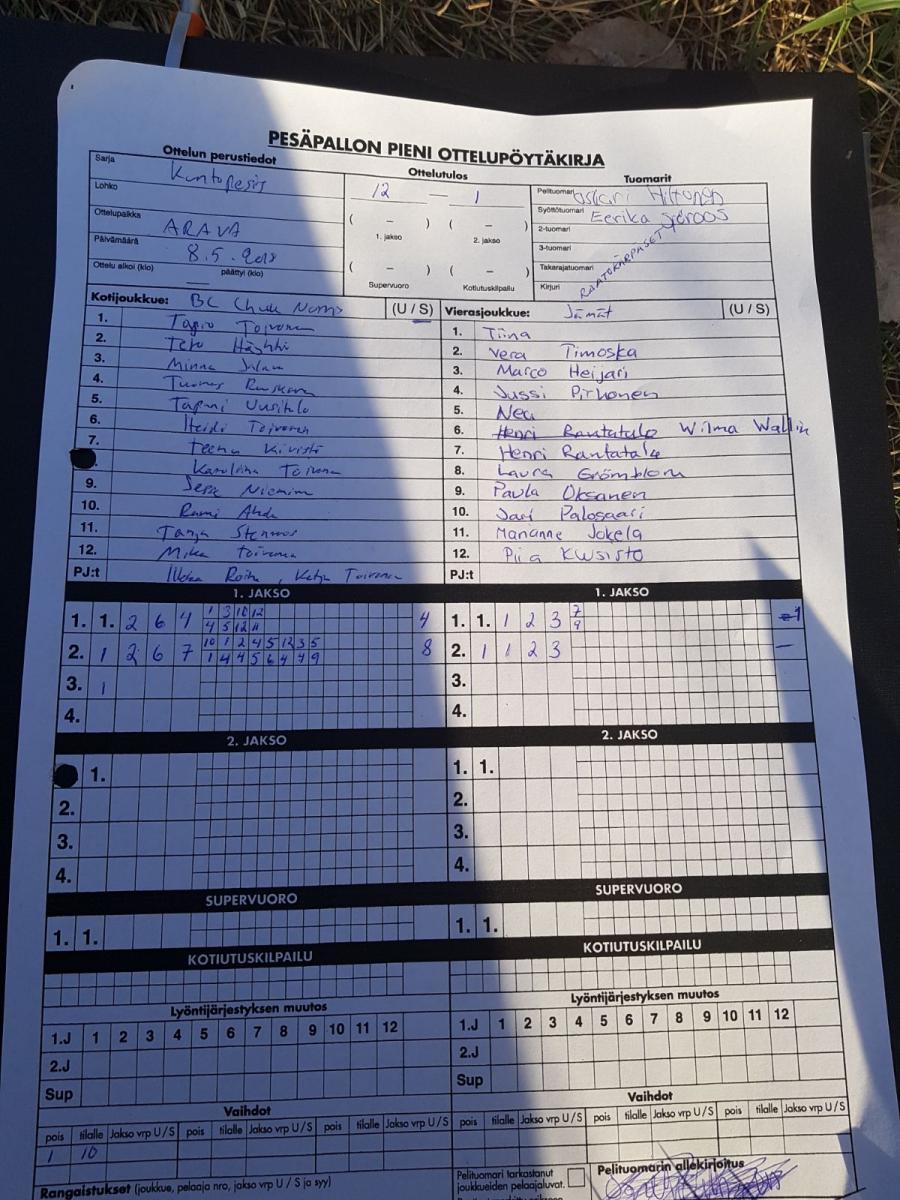 PESÄPALLON PIENI OTTELUPÖYTÄKIRJA
Ottelun perustiedot
Ottelutulos
Tuomarit
Sarja Kuntopesis
12 — 1
Pelituomari Oskari Hiltunen
Lohko
( – ) ( – )
Syöttötuomari Eerika Sjöroos
Ottelupaikka ARAVA
1. jakso 2. jakso
2-tuomari
Päivämäärä 8.5.2018
3-tuomari
( – ) ( – )
Takarajatuomari
Ottelu alkoi (klo) päättyi (klo)
Supervuoro Kotiutuskilpailu
Kirjuri RAATOKÄRPÄSET
Kotijoukkue: BC Chuck Norris (U / S)
1. Tapio Toivonen
2. Tero
3. Minna
4. Tuomas
5. Tapani Uusitalo
6. Heidi Toivonen
7. Teena Kivistö
Karoliina Toivonen
9. Sera Nieminen
10. Rami Ahde
11. Tanja Stenroos
12. Mika Toivonen
PJ:t Roiha, Katja Toivonen
Vierasjoukkue: Jämät (U / S)
1. Tiina
2. Vera Timoska
3. Marco Heijari
4. Jussi Pirhonen
5. Nea
6. Henri Rantatalo Wilma Wallin
7. Henri Rantatalo
8. Laura Grömblom
9. Paula Oksanen
10. Jari Palosaari
11. Marianne Jokela
12. Piia Kuusisto
PJ:t
1. JAKSO
1. 1. 2 6 4 1 3 10 12 4
4 5 12 11
2. 1 2 6 7 10 1 2 4 5 12 3 5 8
1 4 4 5 6 4 4 9
3. 1
4.
1. JAKSO
1. 1. 1 2 3 7 1
9
2. 1 1 2 3 —
3.
4.
2. JAKSO
1.
2.
3.
4.
2. JAKSO
1. 1.
2.
3.
4.
SUPERVUORO
1. 1.
SUPERVUORO
1. 1.
KOTIUTUSKILPAILU
KOTIUTUSKILPAILU
Lyöntijärjestyksen muutos
1.J 1 2 3 4 5 6 7 8 9 10 11 12
2.J
Sup
Lyöntijärjestyksen muutos
1.J 1 2 3 4 5 6 7 8 9 10 11 12
2.J
Sup
Vaihdot
pois tilalle Jakso vrp U / S pois tilalle Jakso vrp U / S pois tilalle Jakso vrp U / S
1 10
Vaihdot
pois tilalle Jakso vrp U / S pois tilalle Jakso vrp U / S pois tilalle Jakso vrp U / S
Rangaistukset (joukkue, pelaaja nro, jakso vrp U / S ja syy)
Pelituomari tarkastanut
joukkueiden pelaajaluvat.
Pelituomarin allekirjoitus